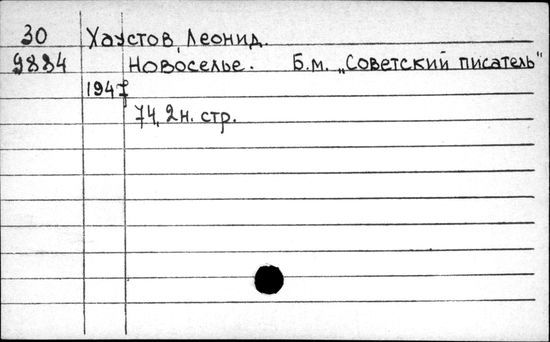 30 Хаустов, Леонид.
9884 Новоселье. Б.м. „Советский писатель"
1947
74, 2н. стр.